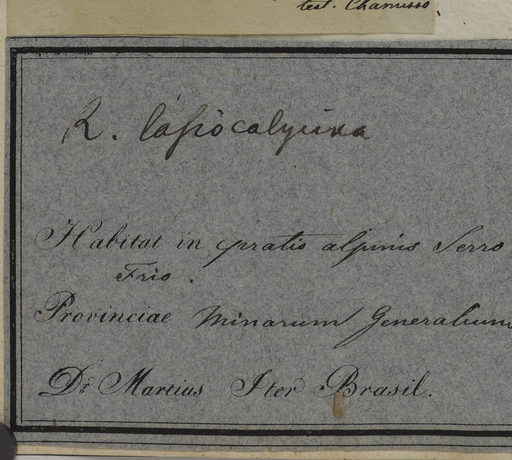 test. Chamisso
R. lasiocalycina
Habitat in pratis alpinis Serro
Frio.
Provinciae Minarum Generalium
Dr. Martius Iter Brasil.